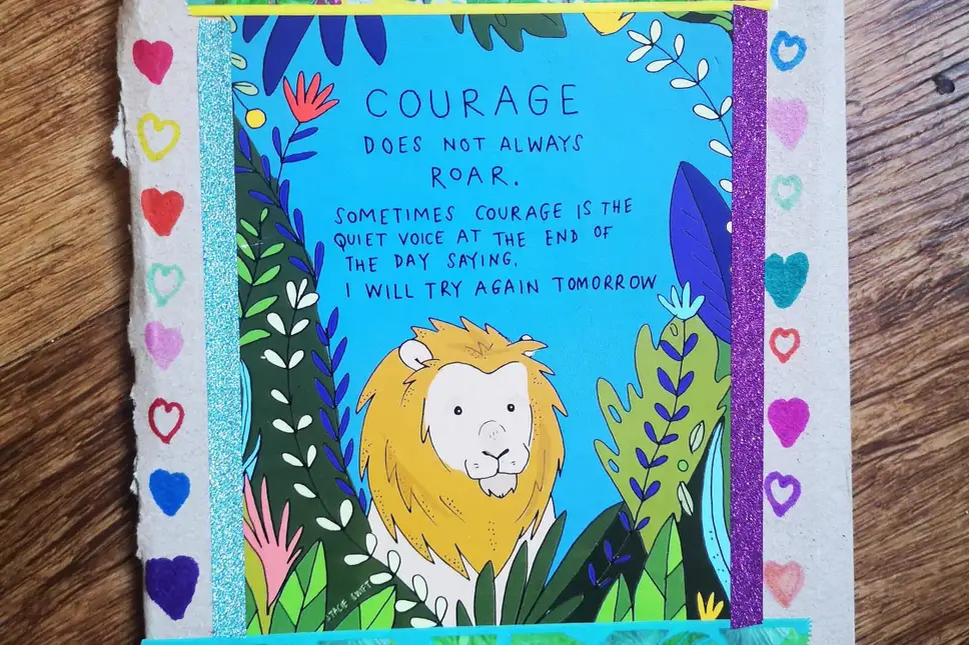 COURAGE
DOES NOT ALWAYS
ROAR.
SOMETIMES COURAGE IS THE
QUIET VOICE AT THE END OF
THE DAY SAYING,
I WILL TRY AGAIN TOMORROW
STACIE SWIFT